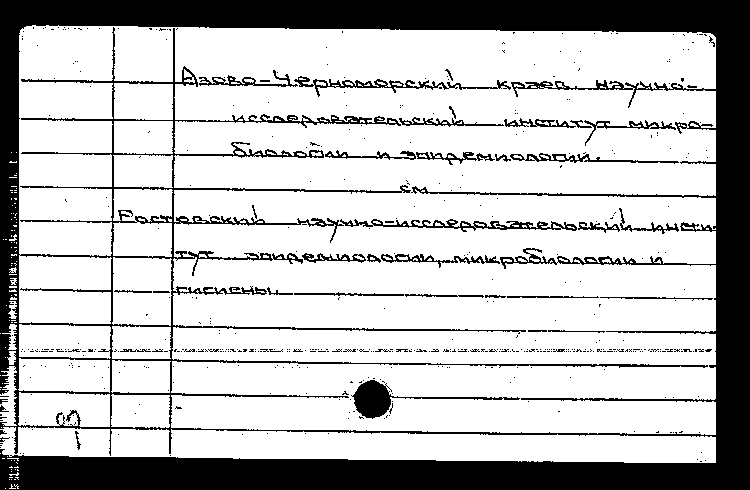 Азово-Черноморский краев. научно-
исследовательский институт микро-
биологии и эпидемиологии.
см
Ростовский научно-исследовательский инсти-
тут эпидемиологии, микробиологии и
гигиены.